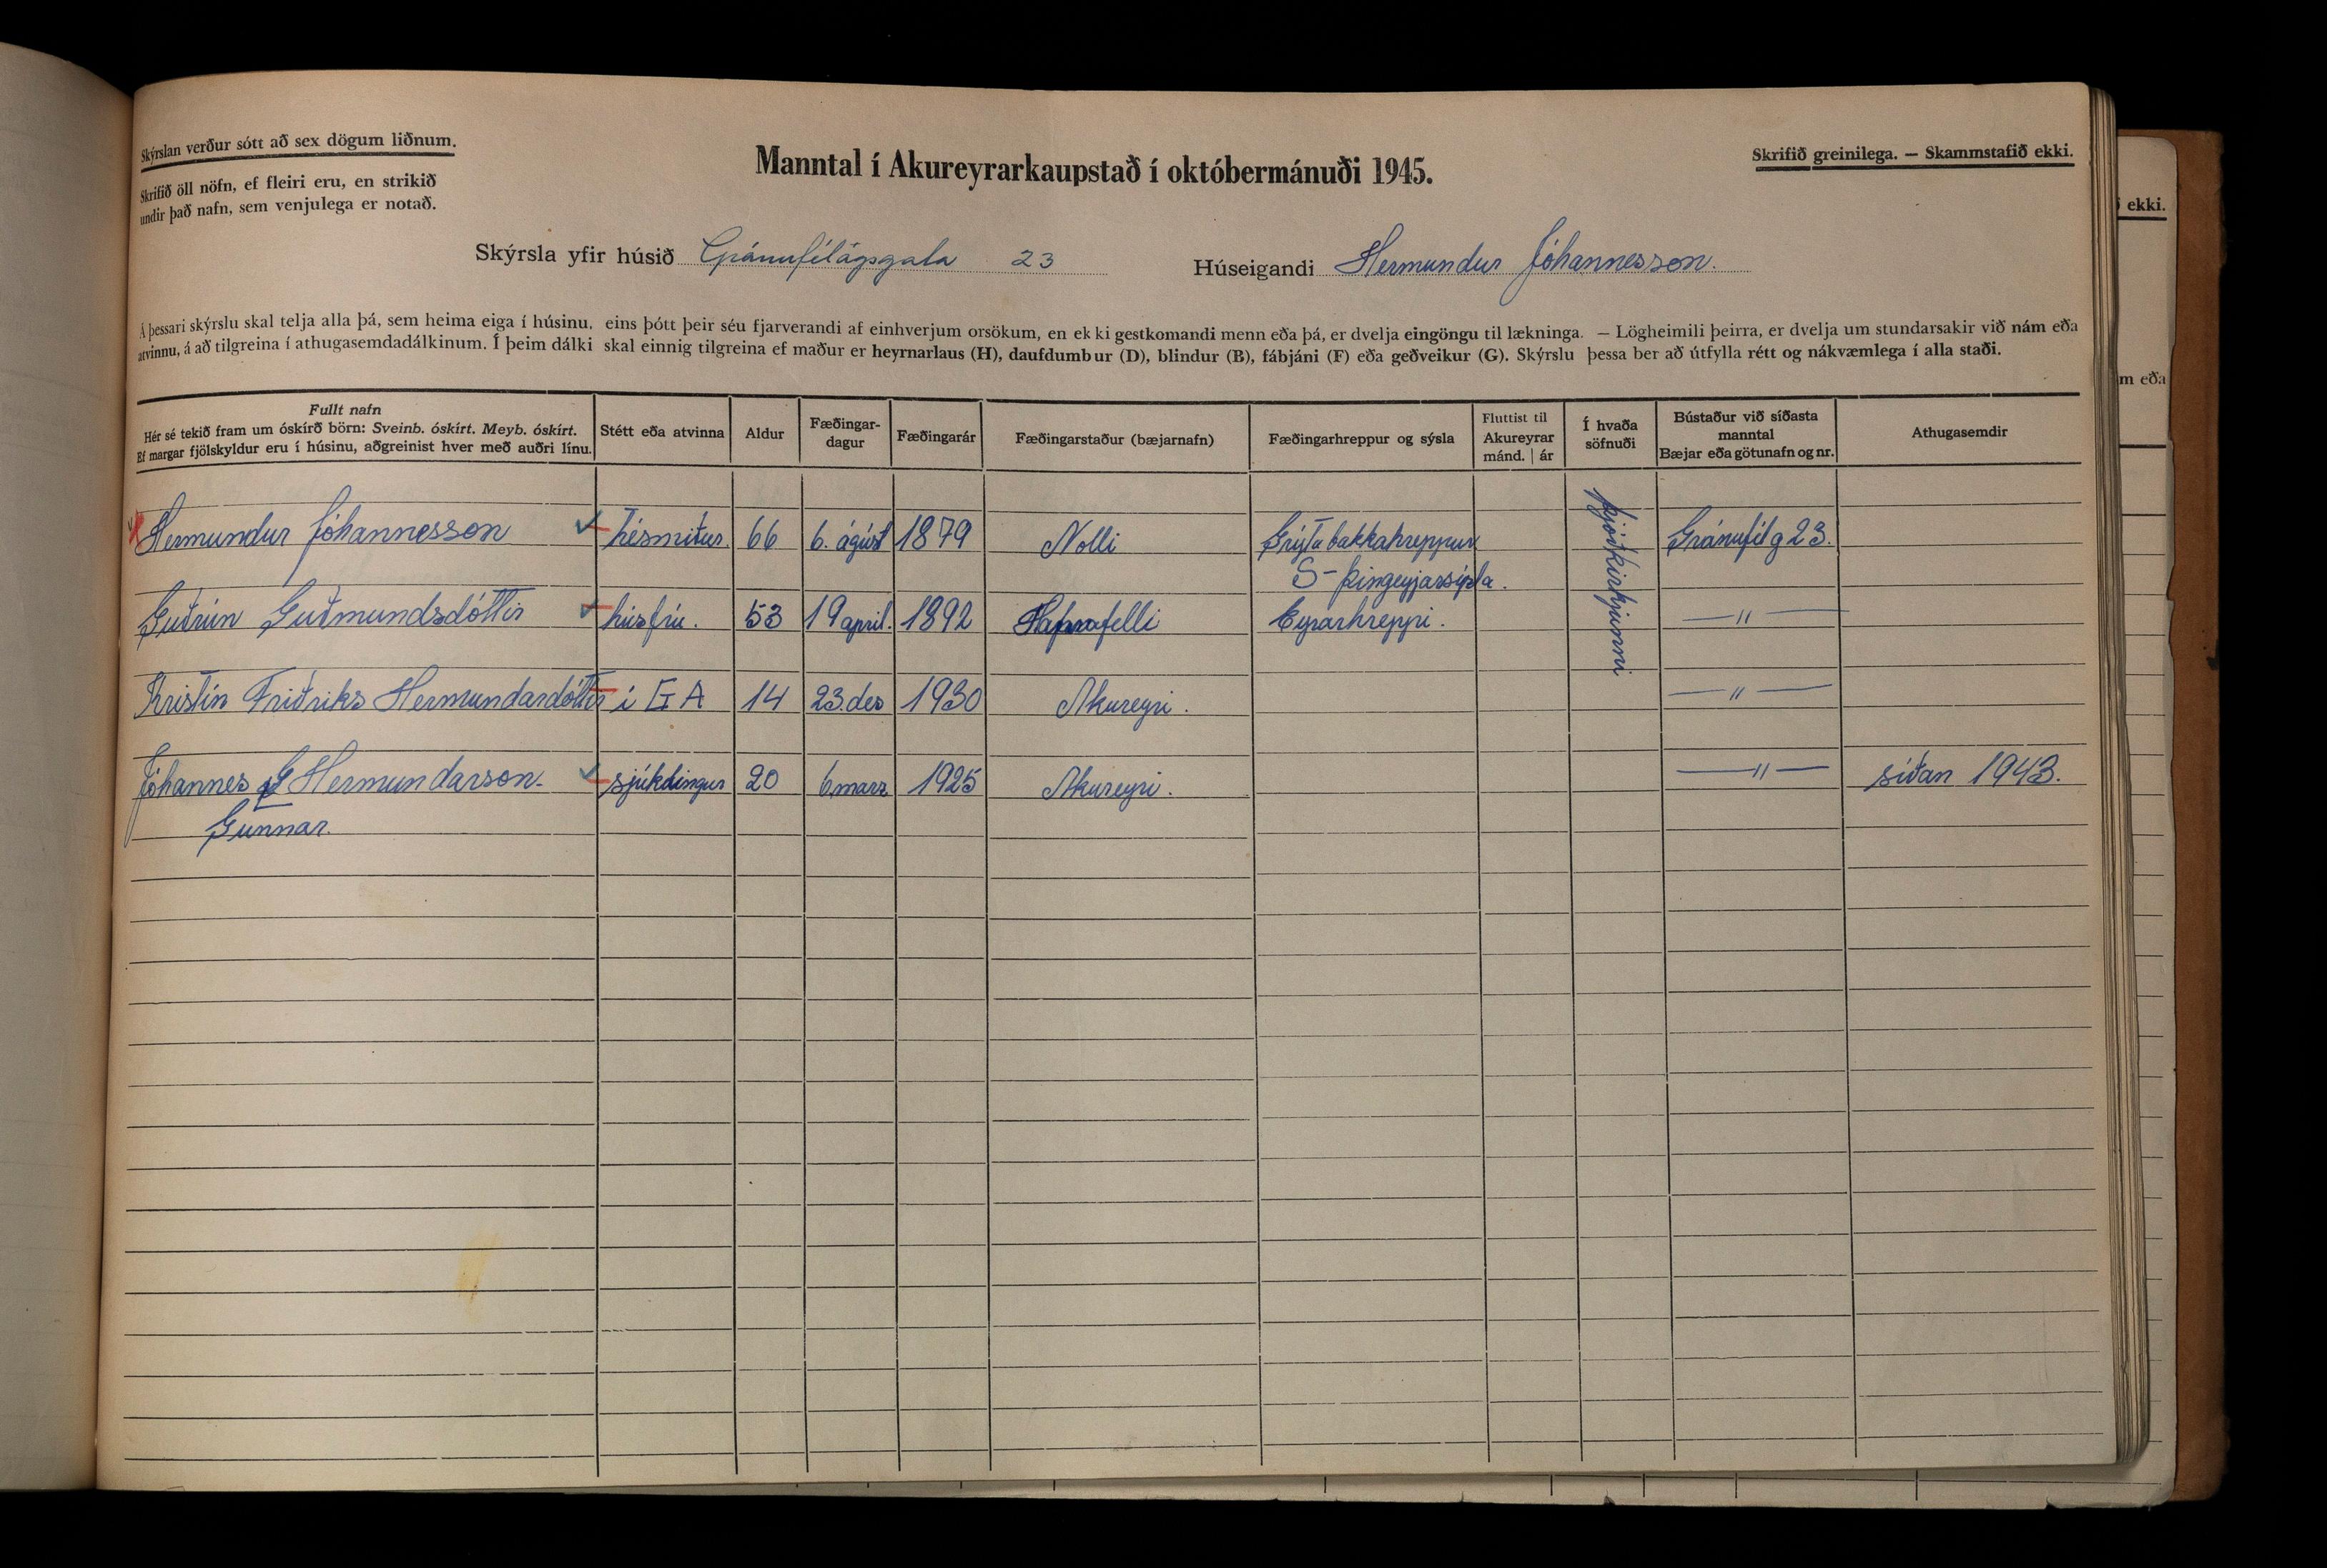 Skýrslan verður sótt að sex dögum liðnum.
Skrifið öll nöfn, ef fleiri eru, en strikið
undir það nafn, sem venjulega er notað.
Manntal í Akureyrarkaupstað í októbermánuði 1945.
Skrifið greinilega. — Skammstafið ekki.
ekki.
Skýrsla yfir húsið Gránufélagsgata 23 Húseigandi Hermundur Jóhannesson.
Á þessari skýrslu skal telja alla þá, sem heima eiga í húsinu, eins þótt þeir séu fjarverandi af einhverjum orsökum, en ekki gestkomandi menn eða þá, er dvelja eingöngu til lækninga. — Lögheimili þeirra, er dvelja um stundarsakir við nám eða
atvinnu, á að tilgreina í athugasemdadálkinum. Í þeim dálki skal einnig tilgreina ef maður er heyrnarlaus (H), daufdumbur (D), blindur (B), fábjáni (F) eða geðveikur (G). Skýrslu þessa ber að útfylla rétt og nákvæmlega í alla staði.
m eða
Fullt nafn
Hér sé tekið fram um óskírð börn: Sveinb. óskírt. Meyb. óskírt.
Ef margar fjölskyldur eru í húsinu, aðgreinist hver með auðri línu.
Stétt eða atvinna
Aldur
Fæðingar-
dagur
Fæðingarár
Fæðingarstaður (bæjarnafn)
Fæðingarhreppur og sýsla
Fluttist til
Akureyrar
mánd. | ár
Í hvaða
söfnuði
Bústaður við síðasta
manntal
Bæjar eða götunafn og nr.
Athugasemdir
Hermundur Jóhannesson trésmiður. 66 6. ágúst 1879 Nolli Grýtubakkahreppur þjóðkirkjunni Gránufélg 23.
S-Þingeyjarsýsla.
Guðrún Guðmundsdóttir húsfrú. 53 19 april. 1892 Hafrafelli Eyrarhreppi. —"—
Kristín Friðriks Hermundardóttir í G A 14 23. des 1930 Akureyri. —"—
Jóhannes G Hermundarson. sjúklingur 20 6 marz 1925 Akureyri. —"— síðan 1943.
Gunnar.